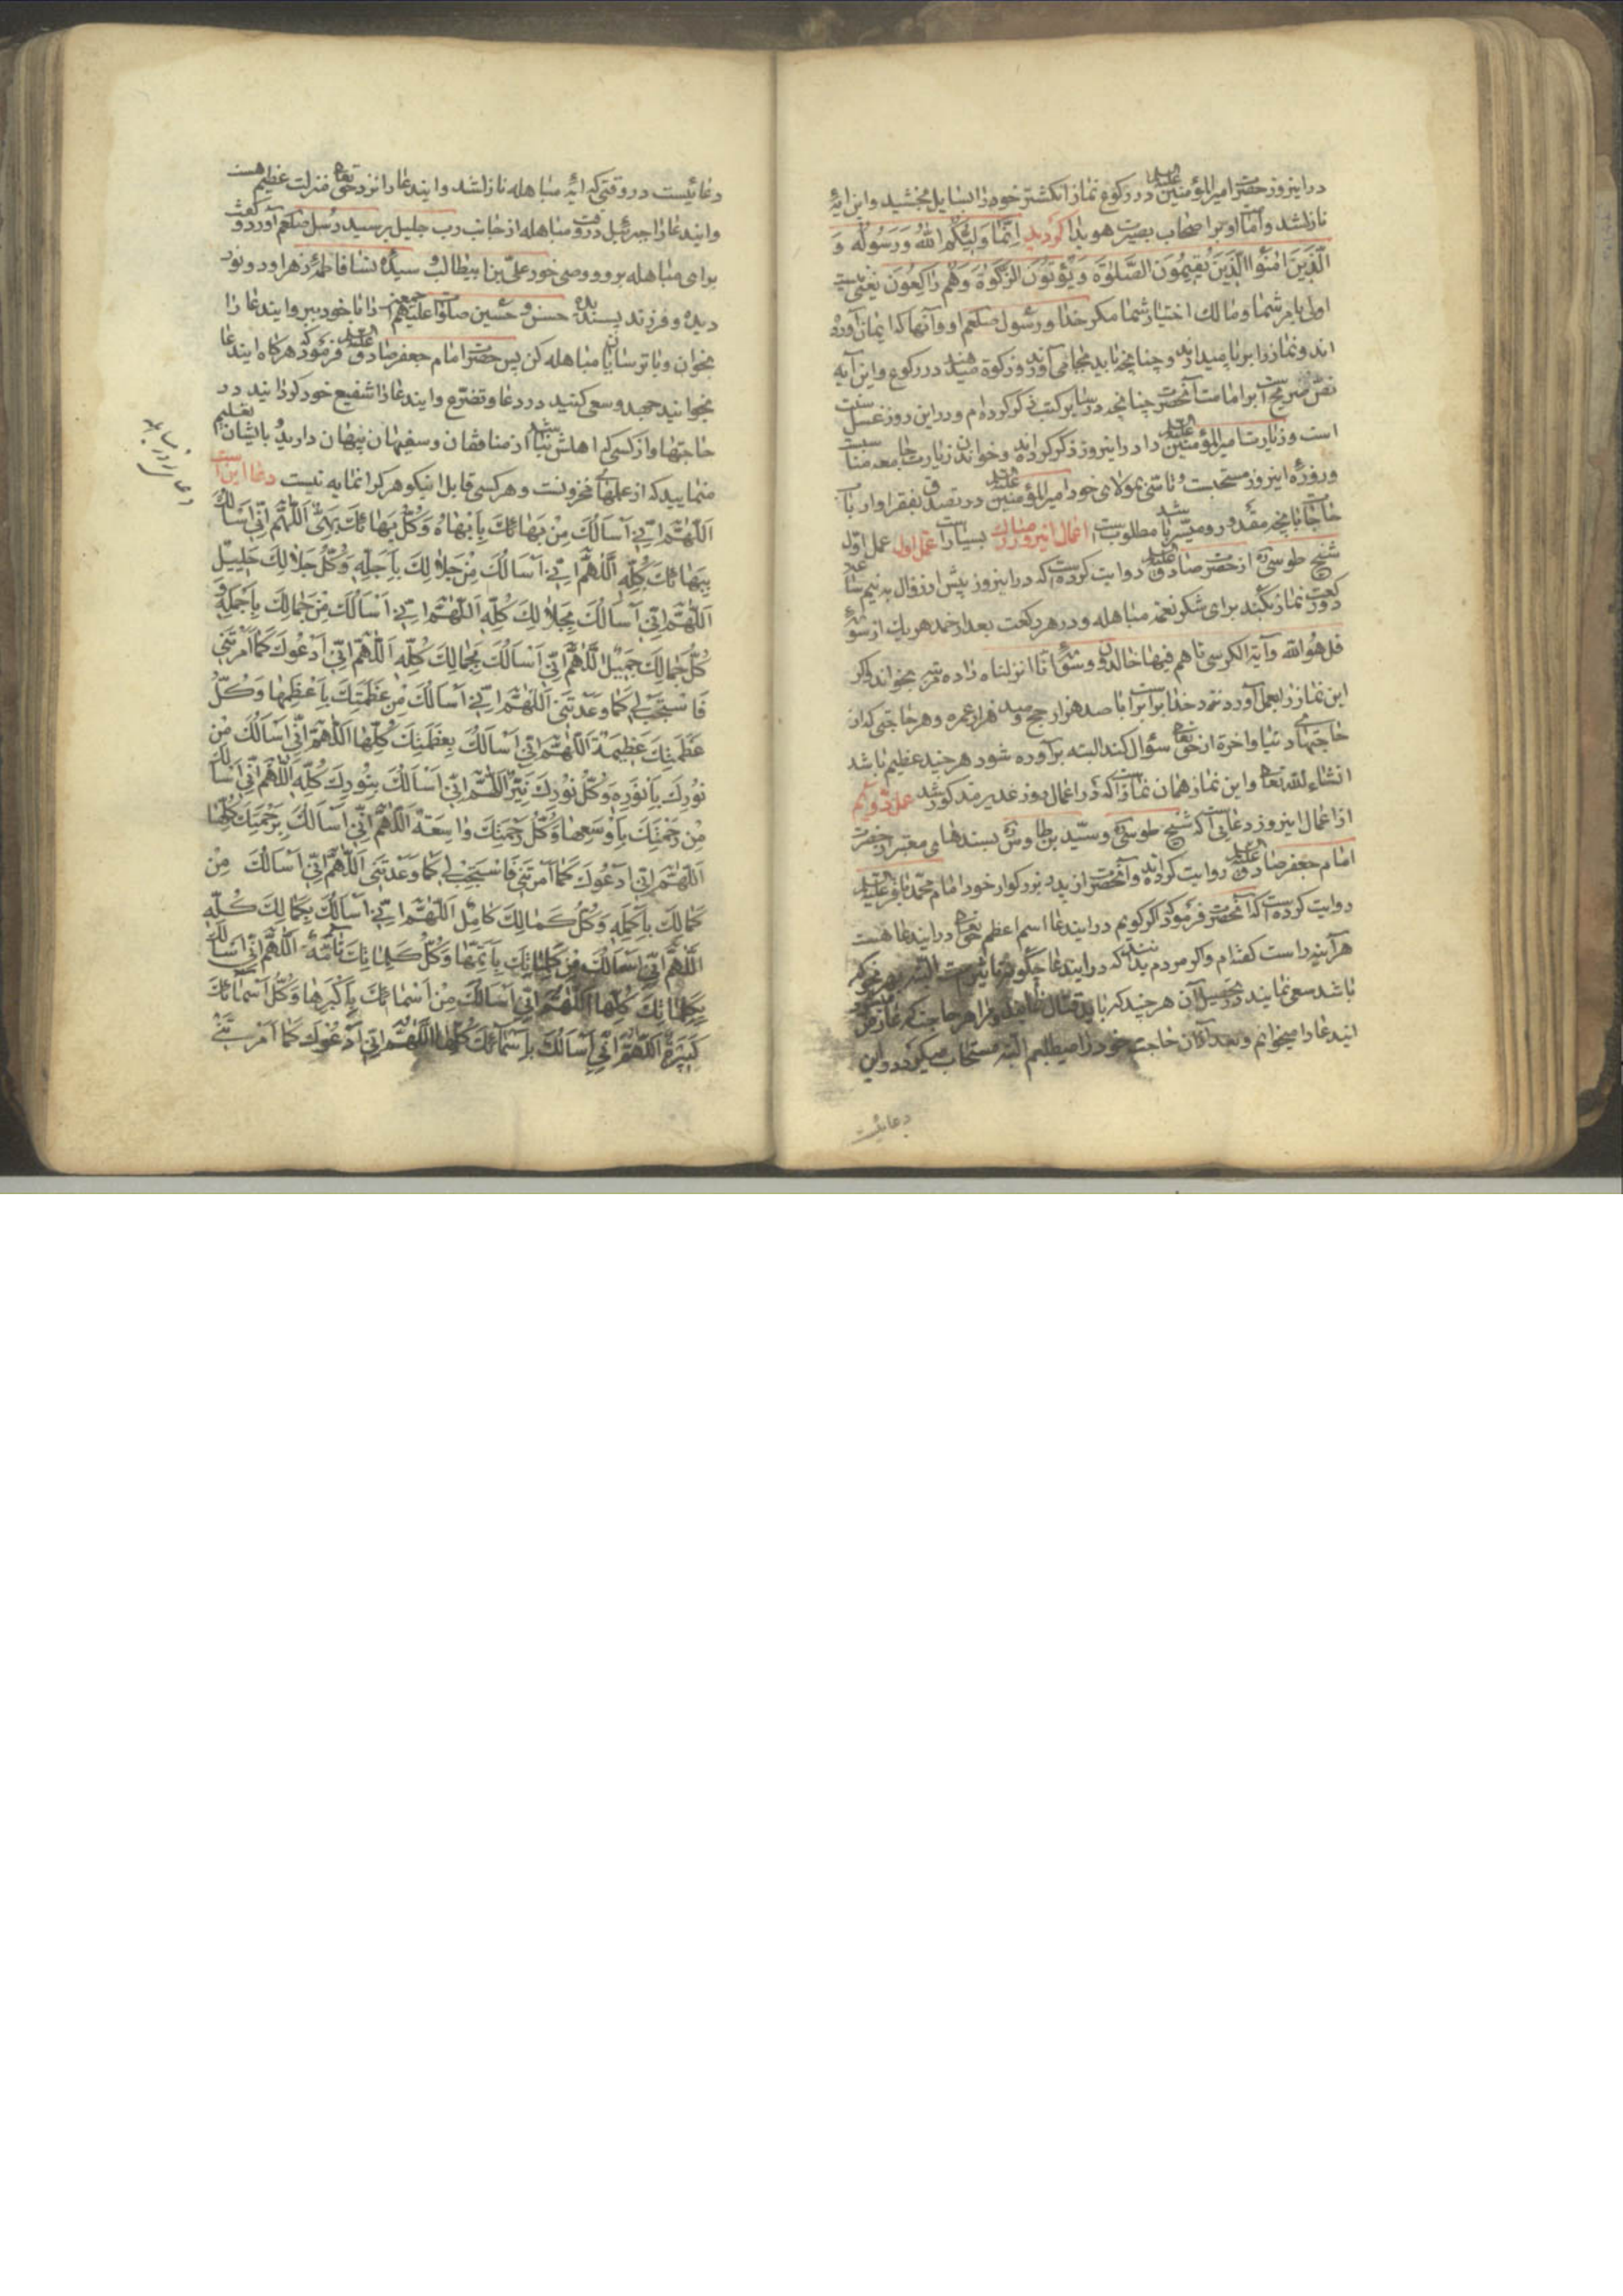 در اینروز حضرت امیرالمؤمنین علیه در رکوع نماز انکشتر خود را بسایل بخشید و این ایهٔ
نازلشد و امامت او بر اصحاب بصیرت هویدا کردید اِنَّمَا وَلِیُّکُمُ اللّٰهُ وَرَسُولُهُ وَ
الَّذِینَ اٰمَنُوا الَّذِینَ یُقِیمُونَ الصَّلٰوةَ وَیُؤْتُونَ الزَّکٰوةَ وَهُمْ رَاکِعُونَ یعنی نیست
اولی بامر شما و مالک اختیار شما مکر خدا و رسول صلعم او و آنها که ایمان آورده
اند و نماز را برپا میدارند و چنانچه باید بجا می آورند و زکوة میدهند در رکوع و این آیه
نص صریح است بر امامت آنحضرت چنانچه در سایر کتب ذکر کرده ام و در این روز غسل سنت
است و زیارت امیرالمؤمنین علیه را در اینروز ذکر کرده اند و خواندن زیارت جامعه مناسبست
و روزهٔ اینروز مستحبست و تاسی بمولای خود امیرالمؤمنین علیه در تصدق بفقرا و ارباب
حاجات بآنچه مقدور و میسر باشد مطلوبست اعمال اینروز مبارک بسیار است عمل اول عمل اول
شیخ طوسی ره از حضرت صادق علیه روایت کرده است که در اینروز پیش از زوال به نیم ساعت
دو رکعت نماز بکند برای شکر نعمت مباهله و در هر رکعت بعد از حمد هر یک از سورهٔ
قل هو الله و آیة الکرسی تا هم فیها خالدون و سورهٔ انا انزلناه را ده مرتبه بخواند و اکر
این نماز را بعمل آورد نزد خدا برابر است با صد هزار حج و صد هزار عمره و هر حاجتی که از
حاجتهای دنیا و اخرة از حق تعالی سؤال کند البته برآورده شود هر چند عظیم باشد
انشاء الله تعالی و این نماز همان نماز است که در اعمال روز غدیر مذکور شد عمل دویم
از اعمال اینروز دعائی است که شیخ طوسی و سید بن طاوس بسندهای معتبر از حضرت
امام جعفر صادق علیه روایت کرده اند و آنحضرت از پدر بزرکوار خود امام محمد باقر علیه
روایت کرده است که آنحضرت فرمود که اکر کویم در ایندعا اسم اعظم حق تعالی در ایندعا هست
هر آینه راست کفته ام و اکر مردم بدانند که در ایندعا چکونه تاثیر است البته بهر نحو که
باشد سعی نمایند در تحصیل آن هر چند که باید قتال نمایند و مرا هر حاجت که عارض
ایندعا را میخوانم و بعد از آن حاجت خود را میطلبم البته مستجاب میکردد و این
دعائیست
دعائیست در وقتی که ایهٔ مباهله نازلشد و ایندعا را نزد حق تعالی منزلت عظیم هست
و ایندعا را جبرئیل در وقت مباهله از جانب رب جلیل بر سید رسل صلعم آورد و کفت
برای مباهله برو و وصی خود علی بن ابیطالب و سیدهٔ نسا فاطمهٔ زهرا و دو نور
دیده و فرزند پسندیده حسن و حسین صلوات علیهم اجمعین را با خود ببر و ایندعا را
بخوان و با ترسایان مباهله کن پس حضرت امام جعفر صادق علیه فرمود که هرکاه ایندعا
بخوانید جهد و سعی کنید در دعا و تضرع و ایندعا را شفیع خود کردانید در
حاجتها و از کسی که اهلش نباشد از منافقان و سفیهان پنهان دارید و باایشان تعلیم
منمایید که از علمهای مخزونست و هر کسی قابل اینکوهر کرانمایه نیست دعا این است
اَللّٰهُمَّ اِنِّی اَسْأَلُکَ مِنْ بَهَائِکَ بِاَبْهَاهُ وَکُلُّ بَهَائِکَ بَهِیٌّ اَللّٰهُمَّ اِنِّی اَسْأَلُکَ
بِبَهَائِکَ کُلِّهِ اَللّٰهُمَّ اِنِّی اَسْأَلُکَ مِنْ جَلَالِکَ بِاَجَلِّهِ وَکُلُّ جَلَالِکَ جَلِیلٌ
اَللّٰهُمَّ اِنِّی اَسْأَلُکَ بِجَلَالِکَ کُلِّهِ اَللّٰهُمَّ اِنِّی اَسْأَلُکَ مِنْ جَمَالِکَ بِاَجْمَلِهِ وَ
کُلُّ جَمَالِکَ جَمِیلٌ اَللّٰهُمَّ اِنِّی اَسْأَلُکَ بِجَمَالِکَ کُلِّهِ اَللّٰهُمَّ اِنِّی اَدْعُوکَ کَمَا اَمَرْتَنِی
فَاسْتَجِبْ لِی کَمَا وَعَدْتَنِی اَللّٰهُمَّ اِنِّی اَسْأَلُکَ مِنْ عَظَمَتِکَ بِاَعْظَمِهَا وَکُلُّ
عَظَمَتِکَ عَظِیمَةٌ اَللّٰهُمَّ اِنِّی اَسْأَلُکَ بِعَظَمَتِکَ کُلِّهَا اَللّٰهُمَّ اِنِّی اَسْأَلُکَ مِنْ
نُورِکَ بِاَنْوَرِهِ وَکُلُّ نُورِکَ نَیِّرٌ اَللّٰهُمَّ اِنِّی اَسْأَلُکَ بِنُورِکَ کُلِّهِ اَللّٰهُمَّ اِنِّی اَسْأَلُکَ
مِنْ رَحْمَتِکَ بِاَوْسَعِهَا وَکُلُّ رَحْمَتِکَ وَاسِعَةٌ اَللّٰهُمَّ اِنِّی اَسْأَلُکَ بِرَحْمَتِکَ کُلِّهَا
اَللّٰهُمَّ اِنِّی اَدْعُوکَ کَمَا اَمَرْتَنِی فَاسْتَجِبْ لِی کَمَا وَعَدْتَنِی اَللّٰهُمَّ اِنِّی اَسْأَلُکَ مِنْ
کَمَالِکَ بِاَکْمَلِهِ وَکُلُّ کَمَالِکَ کَامِلٌ اَللّٰهُمَّ اِنِّی اَسْأَلُکَ بِکَمَالِکَ کُلِّهِ
اَللّٰهُمَّ اِنِّی اَسْأَلُکَ مِنْ کَلِمَاتِکَ بِاَتَمِّهَا وَکُلُّ کَلِمَاتِکَ تَامَّةٌ اَللّٰهُمَّ اِنِّی اَسْأَلُکَ
بِکَلِمَاتِکَ کُلِّهَا اَللّٰهُمَّ اِنِّی اَسْأَلُکَ مِنْ اَسْمَائِکَ بِاَکْبَرِهَا وَکُلُّ اَسْمَائِکَ
کَبِیرَةٌ اَللّٰهُمَّ اِنِّی اَسْأَلُکَ بِاَسْمَائِکَ کُلِّهَا اَللّٰهُمَّ اِنِّی اَدْعُوکَ کَمَا اَمَرْتَنِی